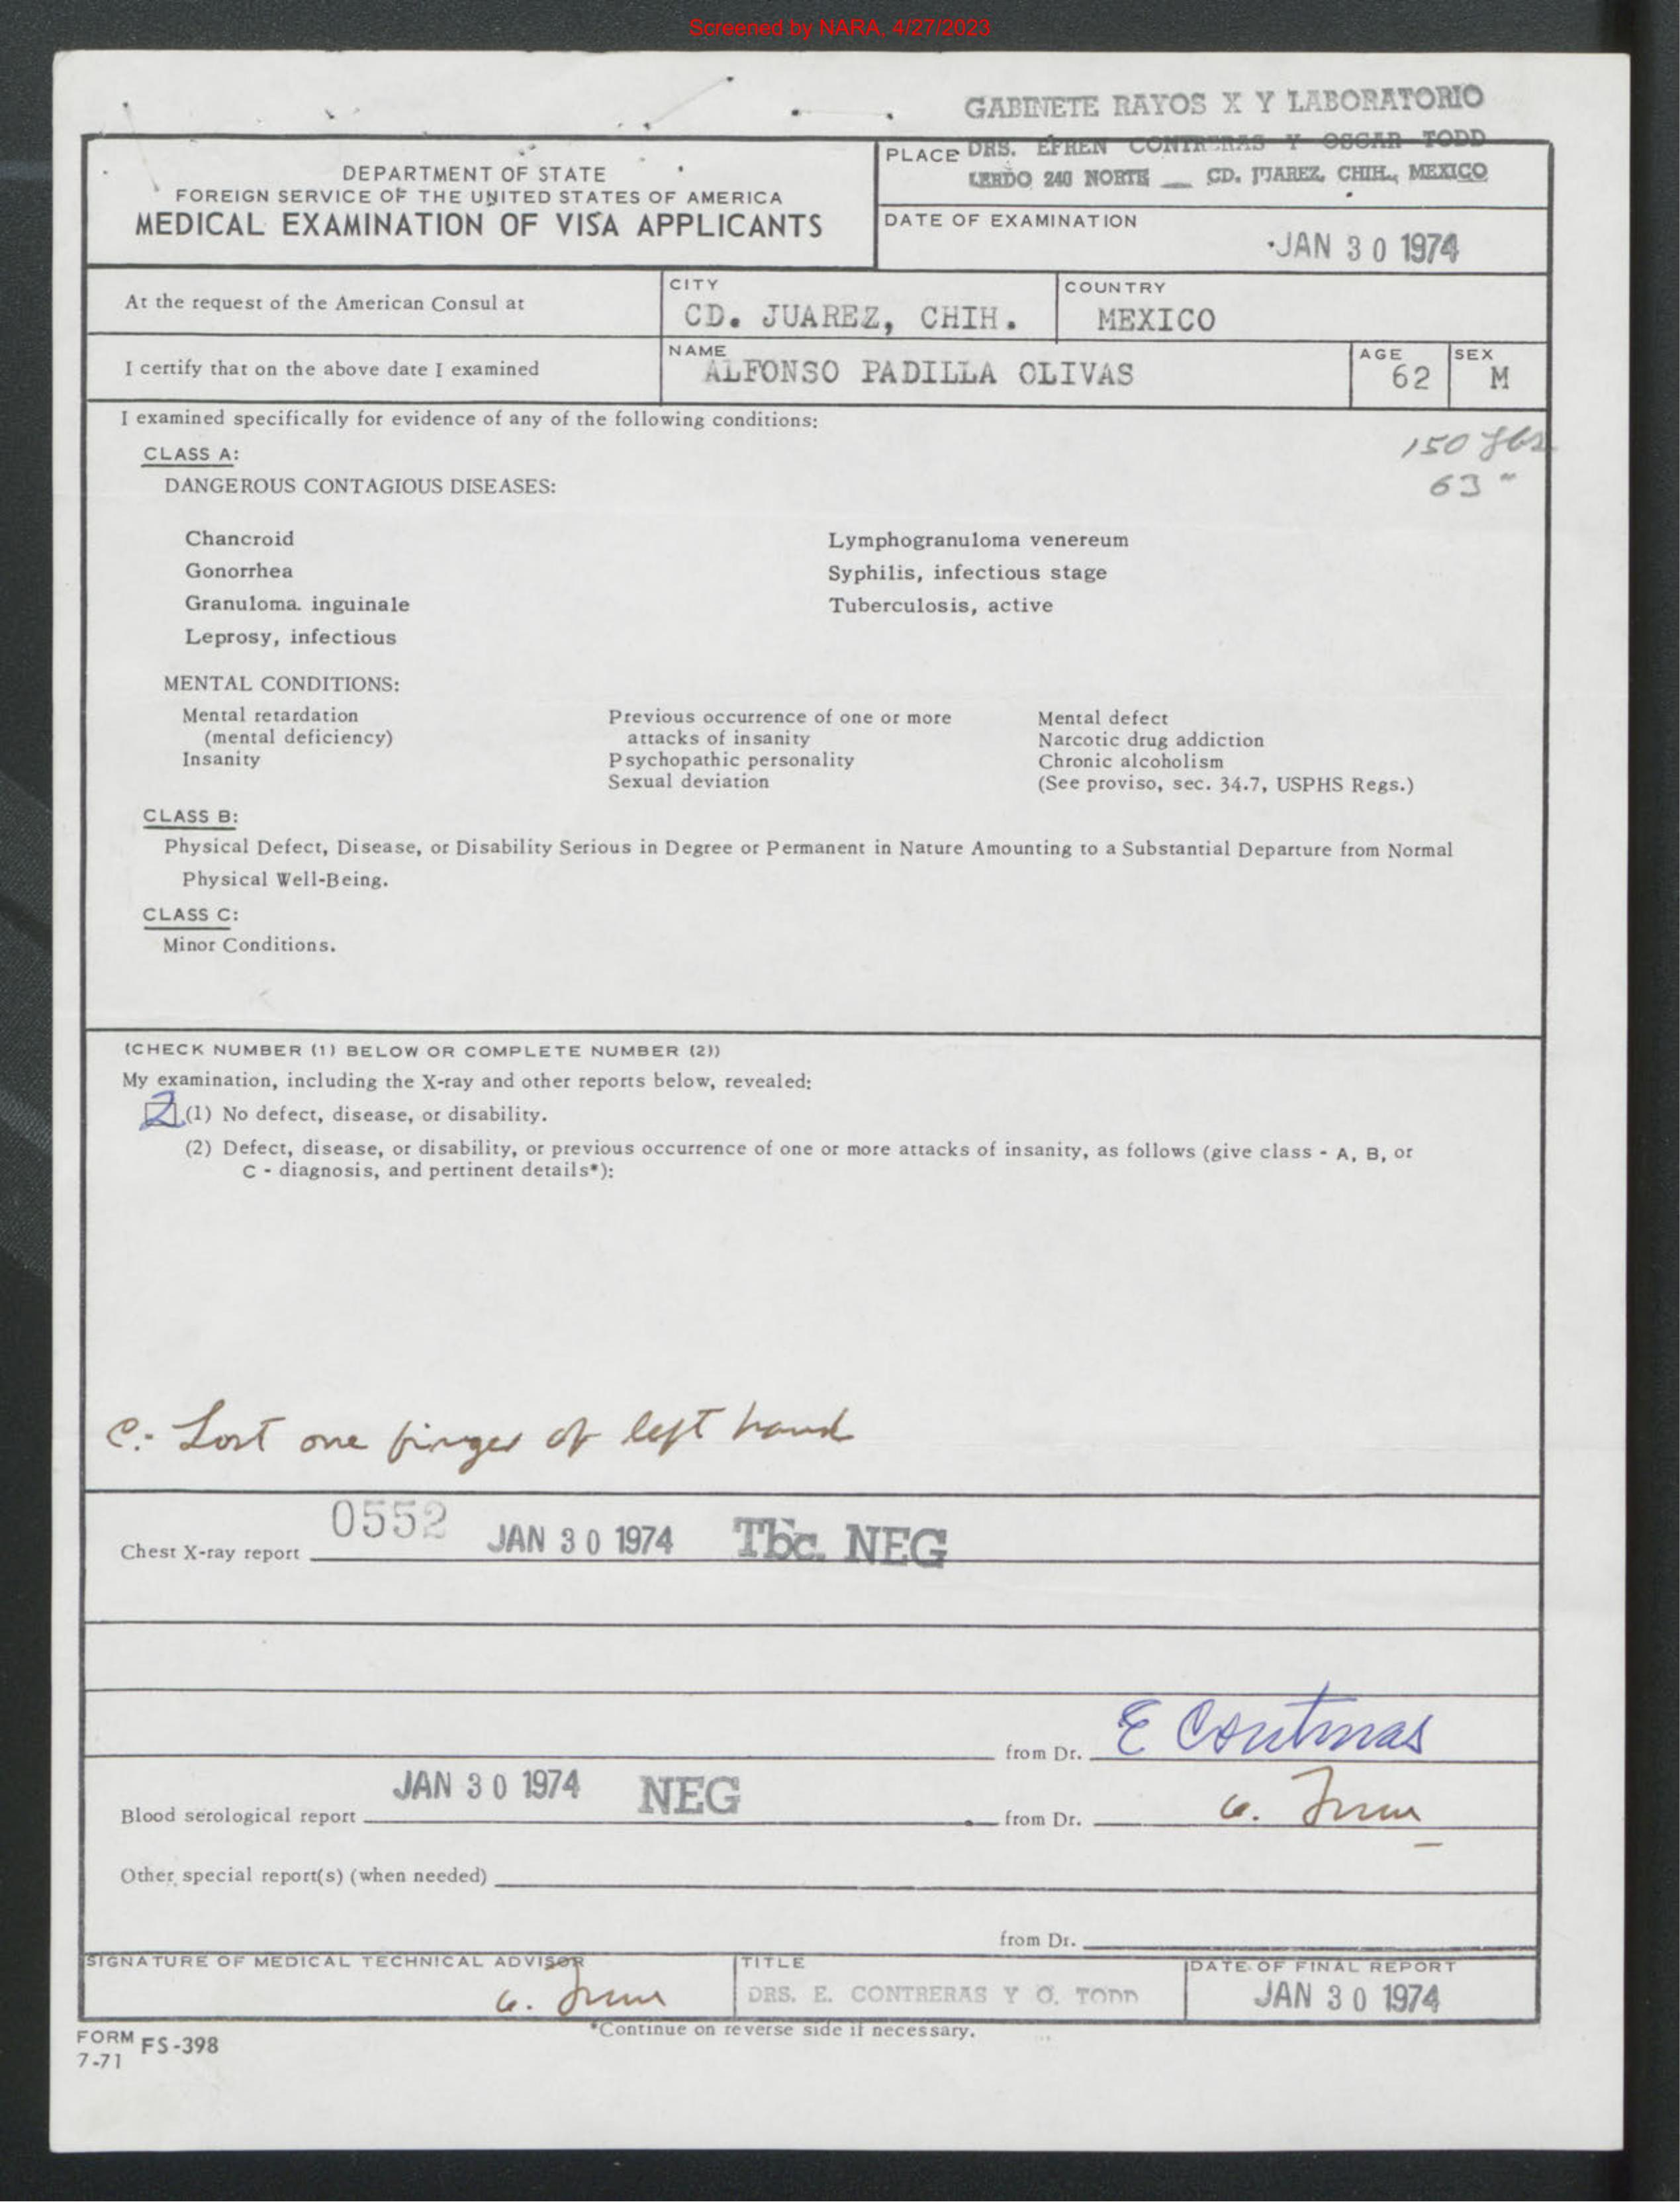 Screened by NARA, 4/27/2023
GABINETE RAYOS X Y LABORATORIO
PLACE DRS. EFREN CONTRERAS Y OSCAR TODD
LERDO 240 NORTE __ CD. JUAREZ, CHIH., MEXICO
DEPARTMENT OF STATE
FOREIGN SERVICE OF THE UNITED STATES OF AMERICA
MEDICAL EXAMINATION OF VISA APPLICANTS
DATE OF EXAMINATION
JAN 30 1974
At the request of the American Consul at
CITY
CD. JUAREZ, CHIH.
COUNTRY
MEXICO
I certify that on the above date I examined
NAME
ALFONSO PADILLA OLIVAS
AGE
62
SEX
M
I examined specifically for evidence of any of the following conditions:
150 lbs
63 "
CLASS A:
DANGEROUS CONTAGIOUS DISEASES:
Chancroid
Gonorrhea
Granuloma. inguinale
Leprosy, infectious
Lymphogranuloma venereum
Syphilis, infectious stage
Tuberculosis, active
MENTAL CONDITIONS:
Mental retardation
(mental deficiency)
Insanity
Previous occurrence of one or more
attacks of insanity
Psychopathic personality
Sexual deviation
Mental defect
Narcotic drug addiction
Chronic alcoholism
(See proviso, sec. 34.7, USPHS Regs.)
CLASS B:
Physical Defect, Disease, or Disability Serious in Degree or Permanent in Nature Amounting to a Substantial Departure from Normal
Physical Well-Being.
CLASS C:
Minor Conditions.
(CHECK NUMBER (1) BELOW OR COMPLETE NUMBER (2))
My examination, including the X-ray and other reports below, revealed:
2 (1) No defect, disease, or disability.
(2) Defect, disease, or disability, or previous occurrence of one or more attacks of insanity, as follows (give class - A, B, or
C - diagnosis, and pertinent details*):
C.- Lost one finger of left hand
Chest X-ray report 0552 JAN 30 1974 Tbc. NEG
from Dr. E Contreras
Blood serological report JAN 30 1974 NEG from Dr.
Other special report(s) (when needed)
from Dr.
SIGNATURE OF MEDICAL TECHNICAL ADVISOR
TITLE
DRS. E. CONTRERAS Y O. TODD
DATE OF FINAL REPORT
JAN 30 1974
*Continue on reverse side if necessary.
FORM FS-398
7-71